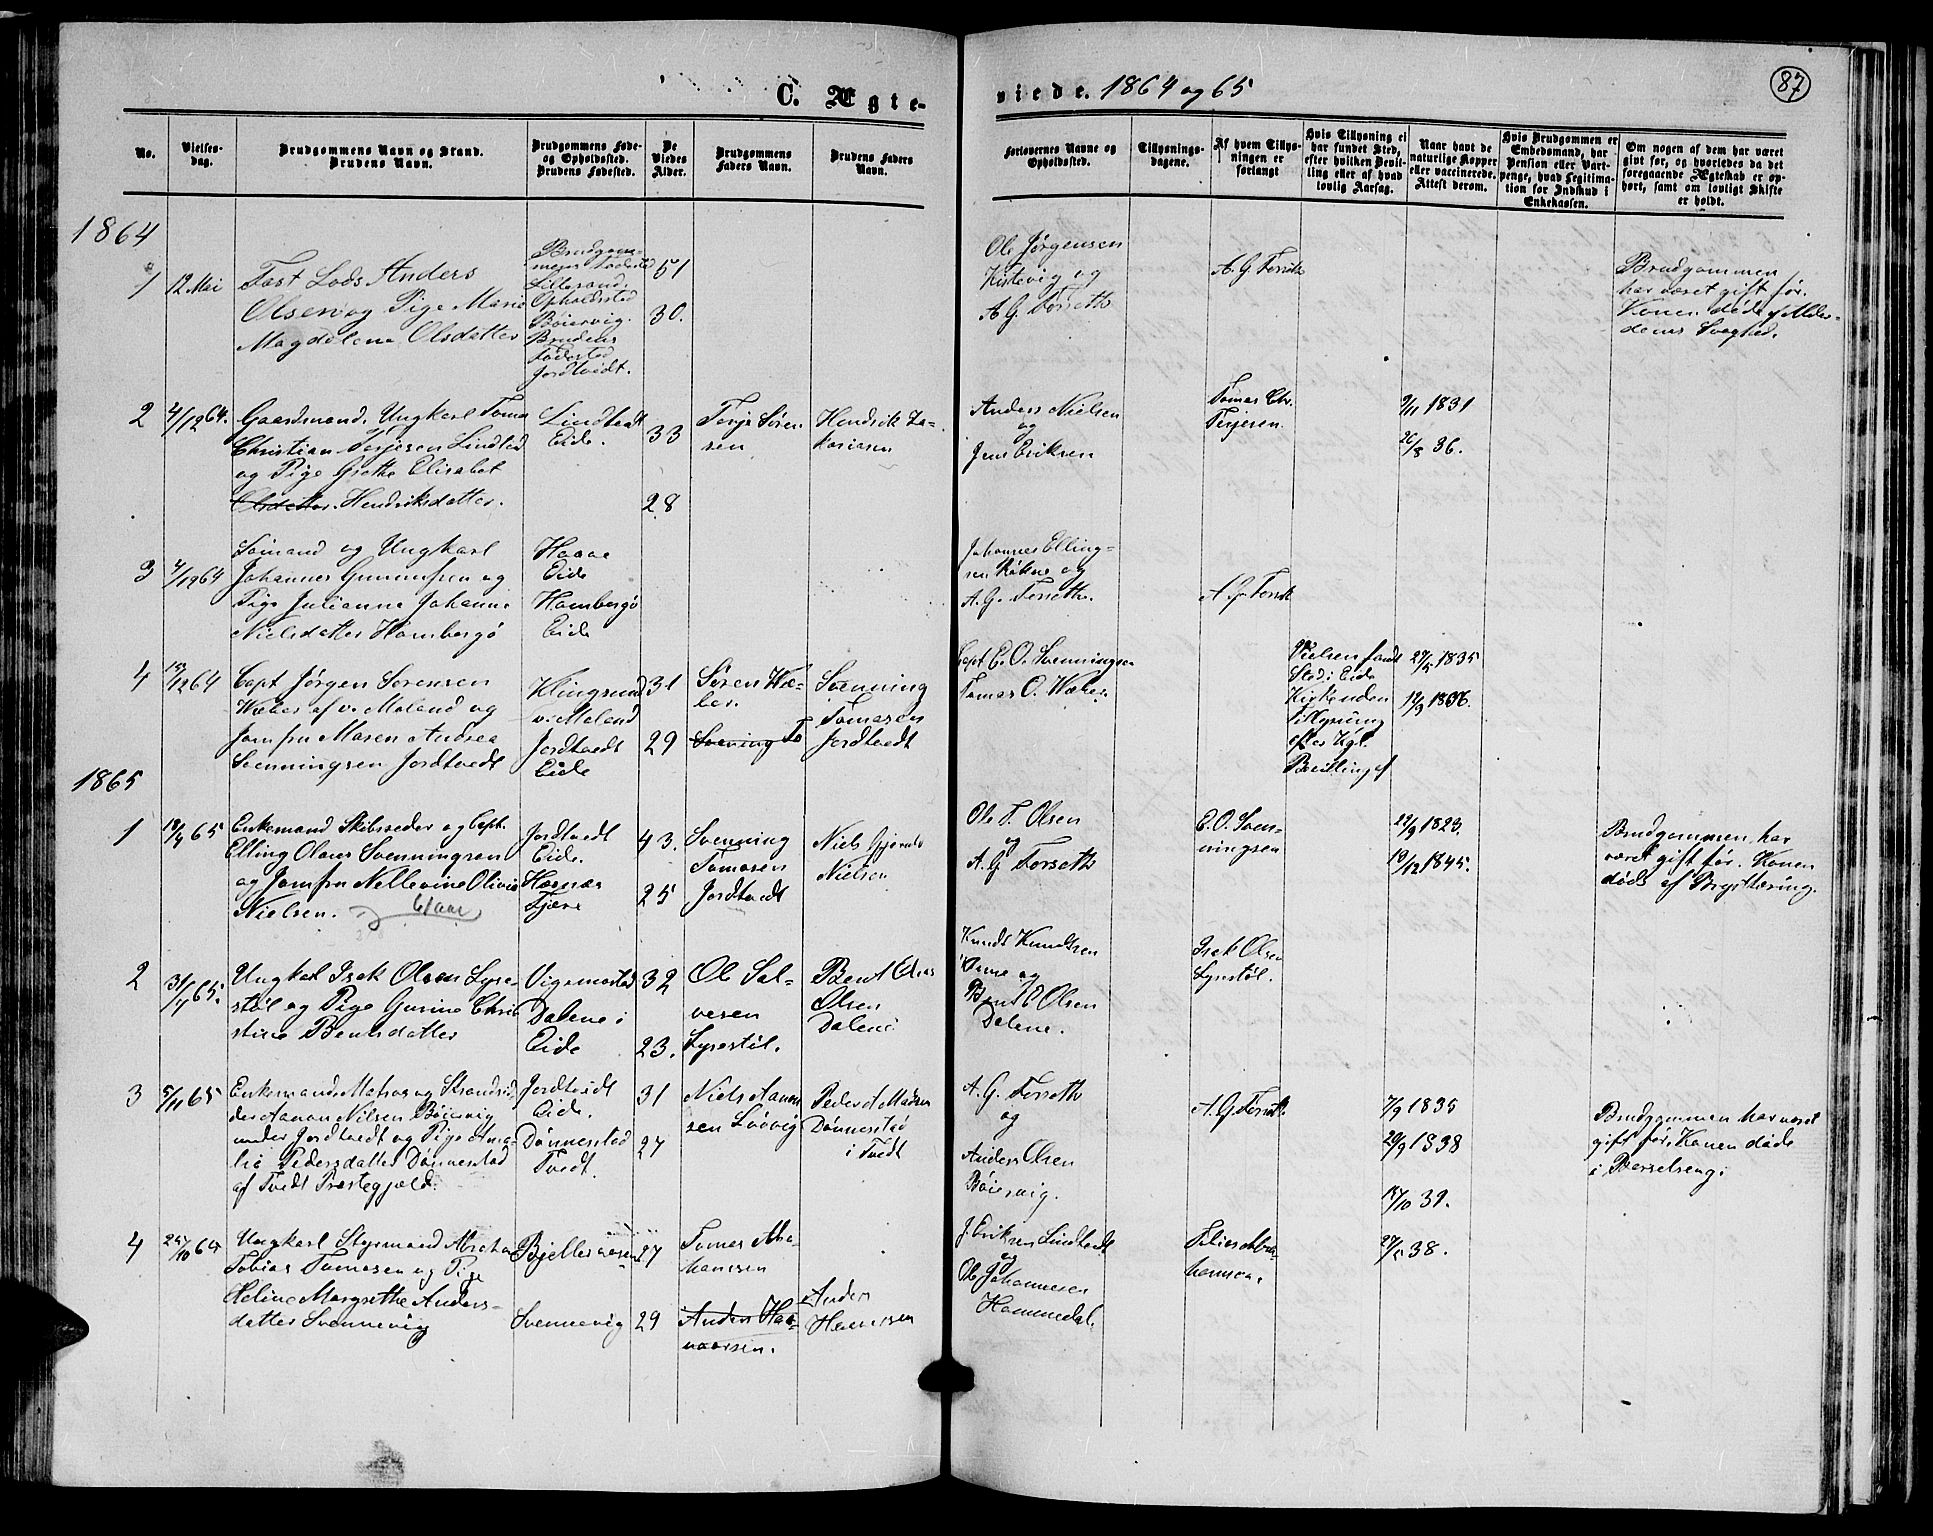 C. Ægte-
viede. 1864 og 65
87
No.
Vielses-
dag.
Brudgommens Navn og Stand.
Brudens Navn.
Brudgommens Føde-
og Opholdssted.
Brudens Fødested.
De
Viedes
Alder.
Brudgommens
Faders Navn.
Brudens Faders
Navn.
Forlovernes Navne og
Opholdssted.
Tillysnings-
dagene.
Af hvem Tillys-
ningen er
forlangt
Hvis Tillysning ei
har fundet Sted,
efter hvilken Bevil-
ling eller af hvad
lovlig Aarsag.
Naar havt de
naturlige Kopper
eller vaccinerede.
Attest derom.
Hvis Brudgommen er
Embedsmand, har
Pension eller Vart-
penge, hvad Legitima-
tion for Indskud i
Enkekassen.
Om nogen af dem har været
gift før, og hvorledes da det
foregaaende Ægteskab er op-
hørt, samt om lovligt Skifte
er holdt.
1864
1
12 Mai
Fast Lods Anders
Olsen og Pige Marie
Magdelena Olsdatter
Brudgom-
mens Fødested
Lillesand,
Opholdsted
Bøiervig.
Brudens
Fødested
Jordtvedt.
51
30.
Ole Jørgensen
Kistevig og
A. G. Forseth
A. G. Forseth
Brudgommen
har været gift før.
Konen døde af Alder-
domssvaghed.
2
4/12 64.
Gaardmand, Ungkarl Tomas
Christian Terjesen Lindtvedt
og Pige Grethe Elisabet
Olsdatter. Hendriksdatter.
Lindtvedt
Eide.
33
28
Terje Søren
sen
Hendrik Za-
kariasen
Anders Nielsen
og
Jens Eriksen
Tomas Chr.
Terjesen.
9/11 1831
26/8 36.
3
4/12 64
Sømand og Ungkarl
Johannes Gunnufsen og
Pige Julianne Johanne
Nielsdatter Hambergø
Haaae
Eide
Hambergø
Eide
Johannes Elling-
sen Røknes og
A. G. Forseth.
A. G. Forseth
4
12 64
Capt Jørgen Sørensen
Weber af v. Moland og
Jomfru Maren Andrea
Svenningsen Jordtvedt
Klingsund
v. Moland
Jordtvedt
Eide
31
29
Søren We-
ber.
Svening To
Svenning
Tomasen
Jordtvedt
Capt E. O. Svenningsen
Tomas O. Weber
Vielsen fandt
Sted i Eide
Kirke uden
Tillysning
efter Kgl.
Bevilling af
27/5 1835
12/9 1836.
1865
1
18/4 65
Enkemand Skibsreder og Capt.
Elling Olaus Svenningsen
og Jomfru Nellevine Olivia
Nielsen.
Jordtvedt
Eide.
Hæsnæs
Fjære
43.
25
Svenning
Tomasen
Jordtvedt
Niels Gjerulv
Nielsen
Ole T. Olsen
og
A. G. Forseth
E. O. Sven-
ningsen
22/9 1823.
19/12 1845.
Brudgommen har
været gift før. Konen
døde af Brysttæring.
2
31/7 65.
Ungkarl Isak Olsen Lyre-
støl og Pige Gurine Chri
stine Bentsdatter
Vigemostad
Dalene i
Eide
32
23.
Ole Sal-
vesen
Lyrestöl.
Bent Elias
Olsen
Dalene
Knudt Knudtsen
og
Bent E Olsen
Dalene.
Isak Olsen
Lyrestöl.
3
5/11 65
Enkemand, Matros og Strandsid
der Aanon Nilsen Bøiervig
under Jordtvedt og Pige Ama-
lie Pedersdatter Dønnestad
af Tvedt Præstegjeld.
Jordtvedt
Eide.
Dønnestad
Tvedt.
31
27
Niels Aanon
sen Løvvig
Peder A Madsen
Dønnestad
i Tvedt
A. G. Forseth
og
Anders Olsen
Bøiervig.
A. G. Forseth
7/9 1835
29/9 1838
18/10 39.
Brudgommen har været
gift før, Konen døde
i Barselseng.
4
Ungkarl Styrmand Abraha
Tobias Tomasen og Pige
Helene Margrethe Anders-
datter Svennevig
Bjelleraasen
Svennevig
27
29
Tomas Abra-
hamsen
Anders Haa-
vorsen.
Anders
J. Eriksen Lindtvedt
og
Ole Johannesen
Hammedal.
Abra-
hamsen.
38.